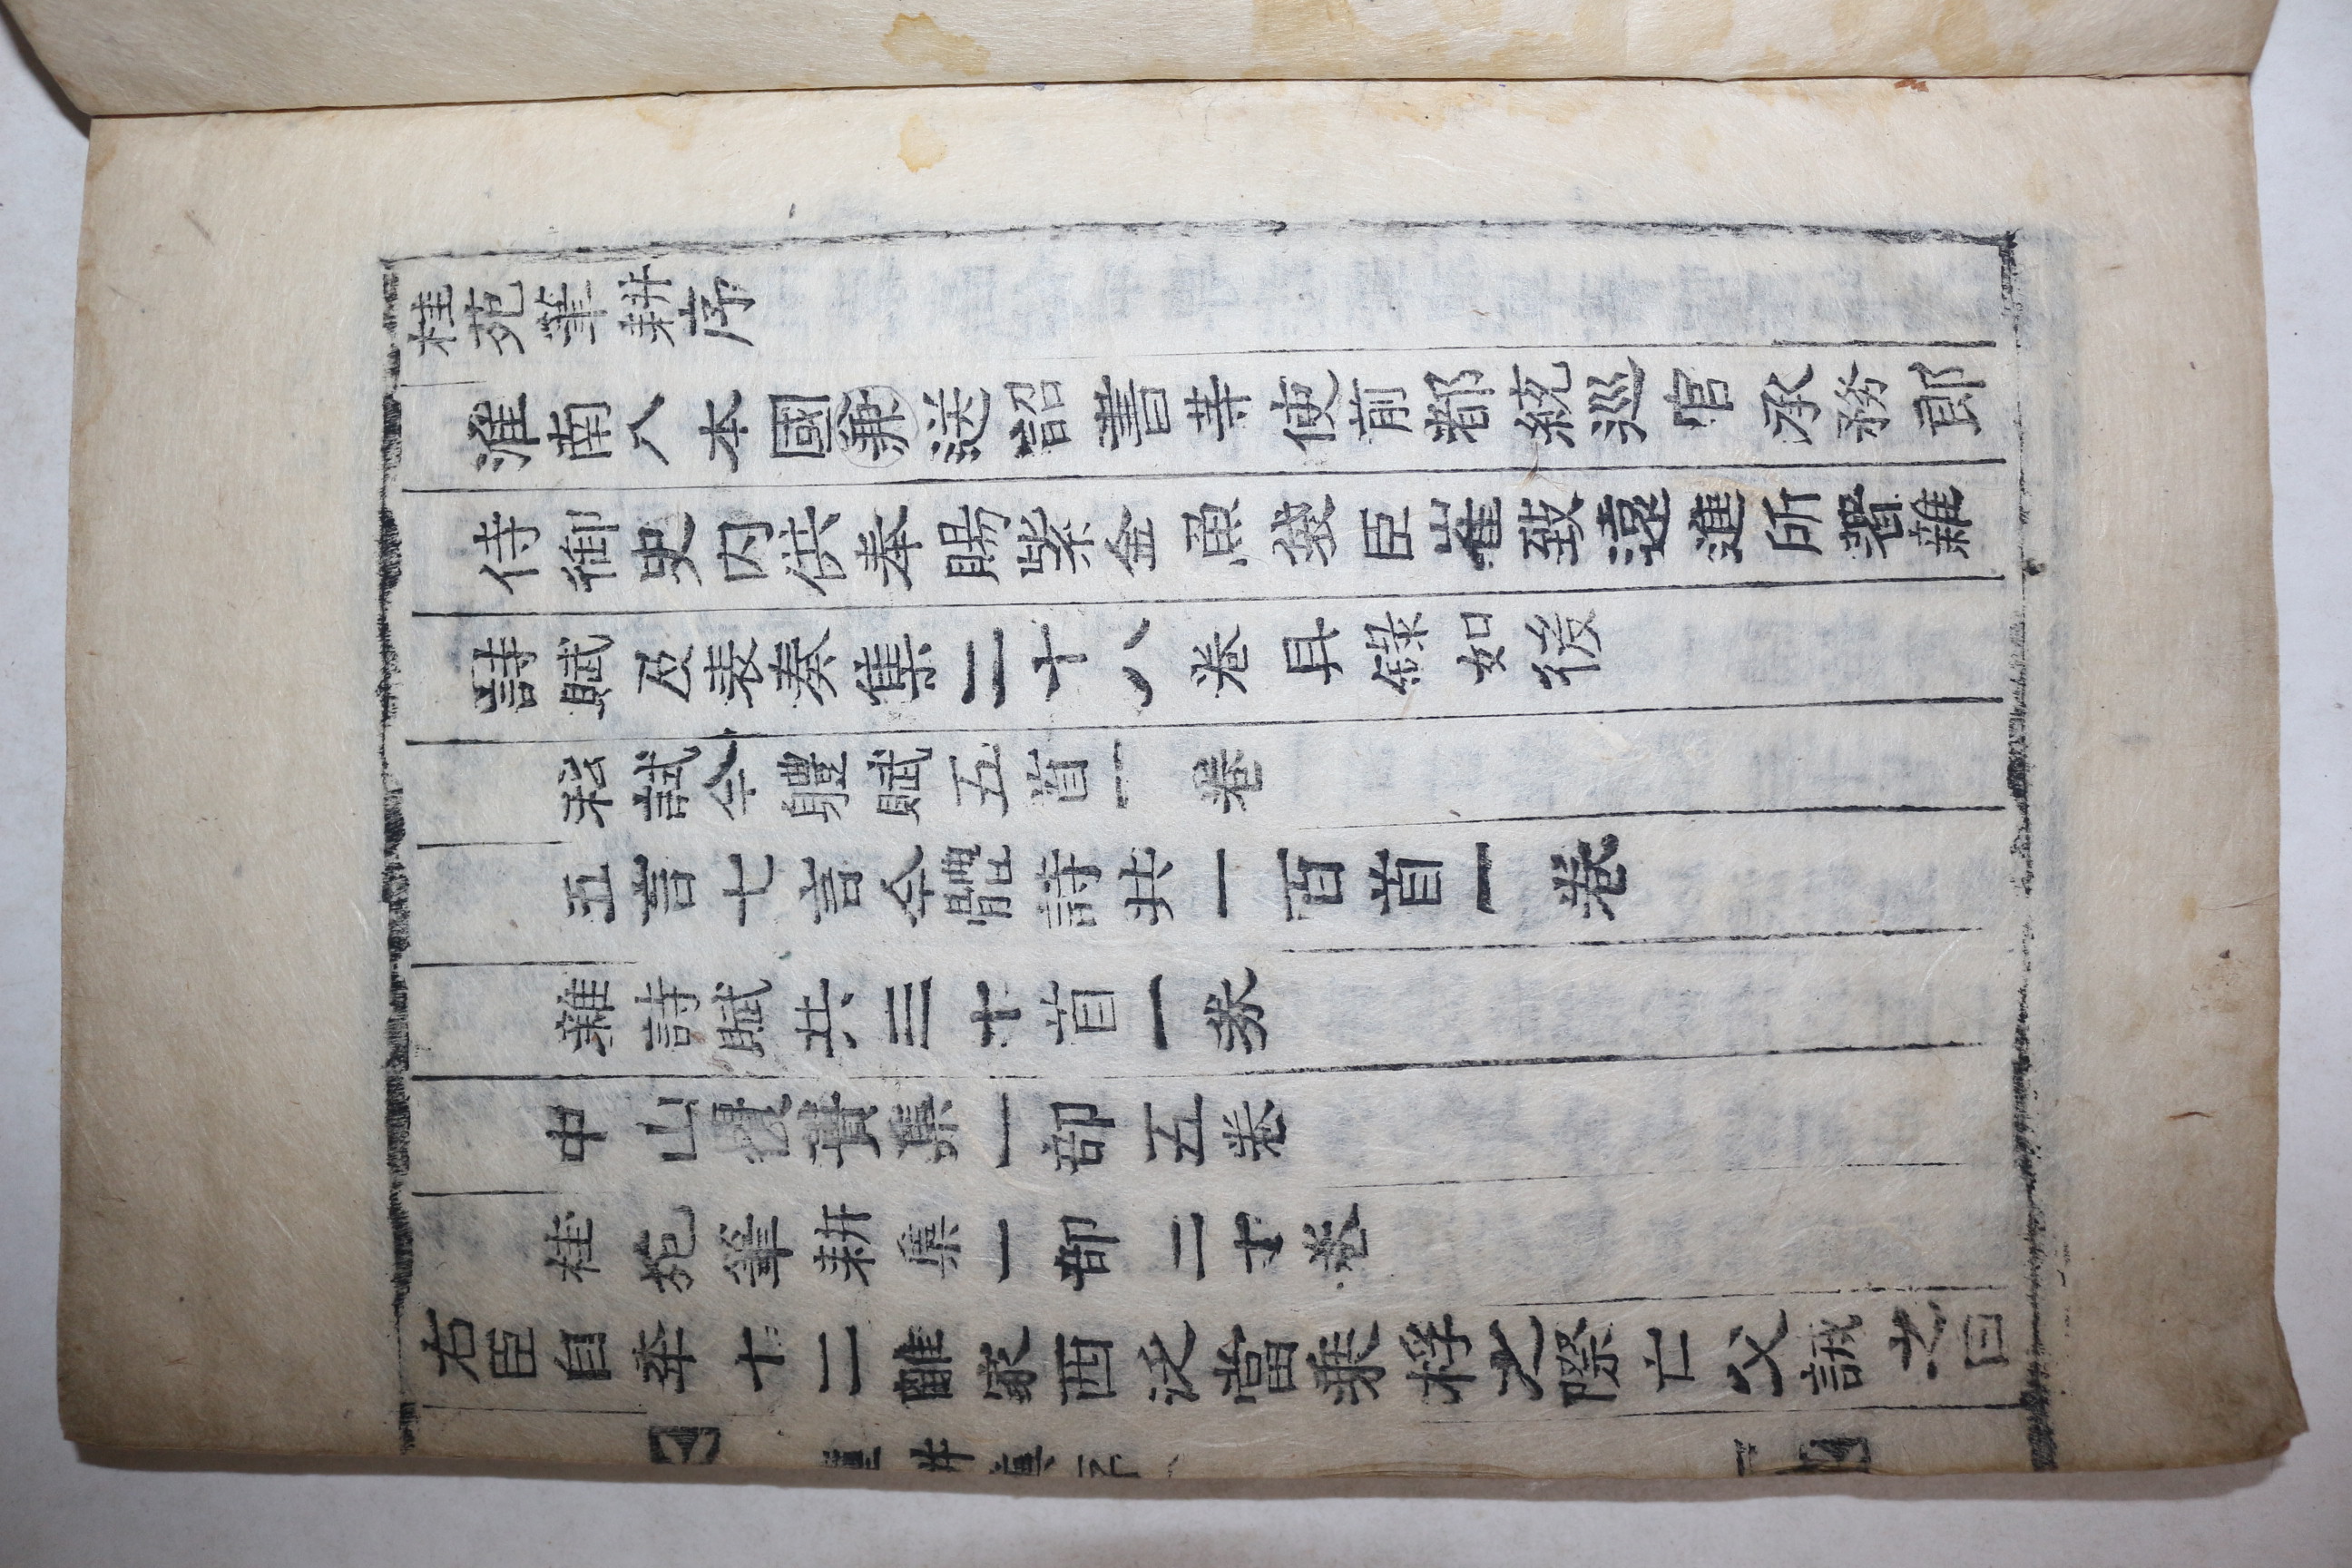 桂苑筆耕序
淮南入本國兼送詔書等使前都統巡官承務郎
侍御史內供奉賜紫金魚袋臣崔致遠進所著雜
詩賦及表奏集二十八卷具錄如後
私試今體賦五首一卷
五言七言今體詩共一百首一卷
雜詩賦共三十首一卷
中山覆簣集一部五卷
桂苑筆耕集一部二十卷
右臣自年十二離家西泛當乘桴之際亡父誡之曰
筆耕集序